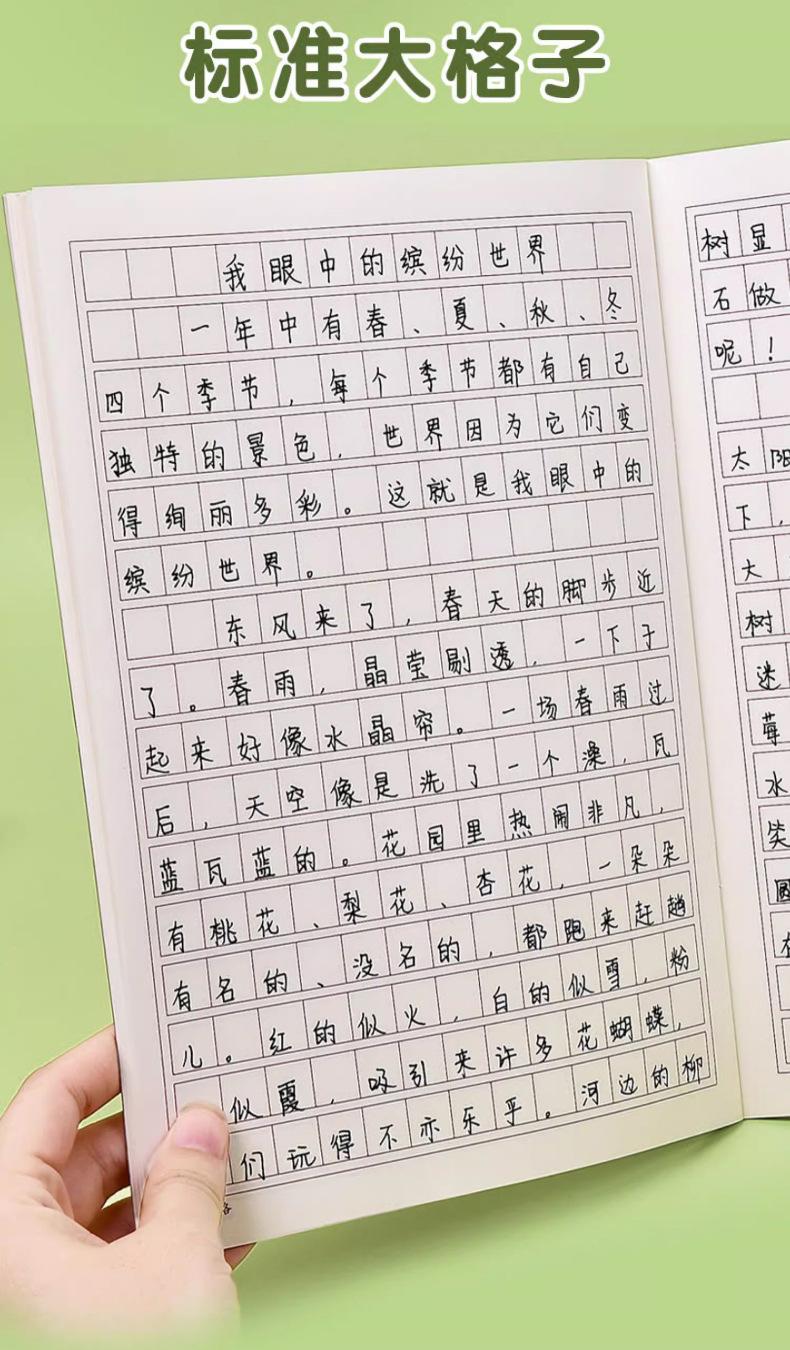 标准大格子
我眼中的缤纷世界
一年中有春、夏、秋、冬
四个季节，每个季节都有自己
独特的景色，世界因为它们变
得绚丽多彩。这就是我眼中的
缤纷世界。
东风来了，春天的脚步近
了。春雨，晶莹剔透，一下子
起来好像水晶帘。一场春雨过
后，天空像是洗了一个澡，瓦
蓝瓦蓝的。花园里热闹非凡，
有桃花、梨花、杏花，一朵朵
有名的、没名的，都跑来赶趟
儿。红的似火，白的似雪，粉
似霞，吸引来许多花蝴蝶，
们玩得不亦乐乎。河边的柳
树显
石做
呢！
太阳
下，
大
树
迷
莓
水
笑
圆